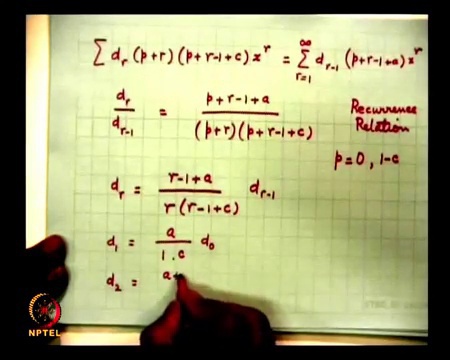 ∑ d_r (p+r) (p+r-1+c) x^r = ∑_{r=1}^{∞} d_{r-1} (p+r-1+a) x^r
d_r / d_{r-1} = (p+r-1+a) / ((p+r) (p+r-1+c))
Recurrence
Relation
p=0, 1-c
d_r = (r-1+a) / (r (r-1+c)) d_{r-1}
d_1 = a / (1 . c) d_0
d_2 = a+
NPTEL